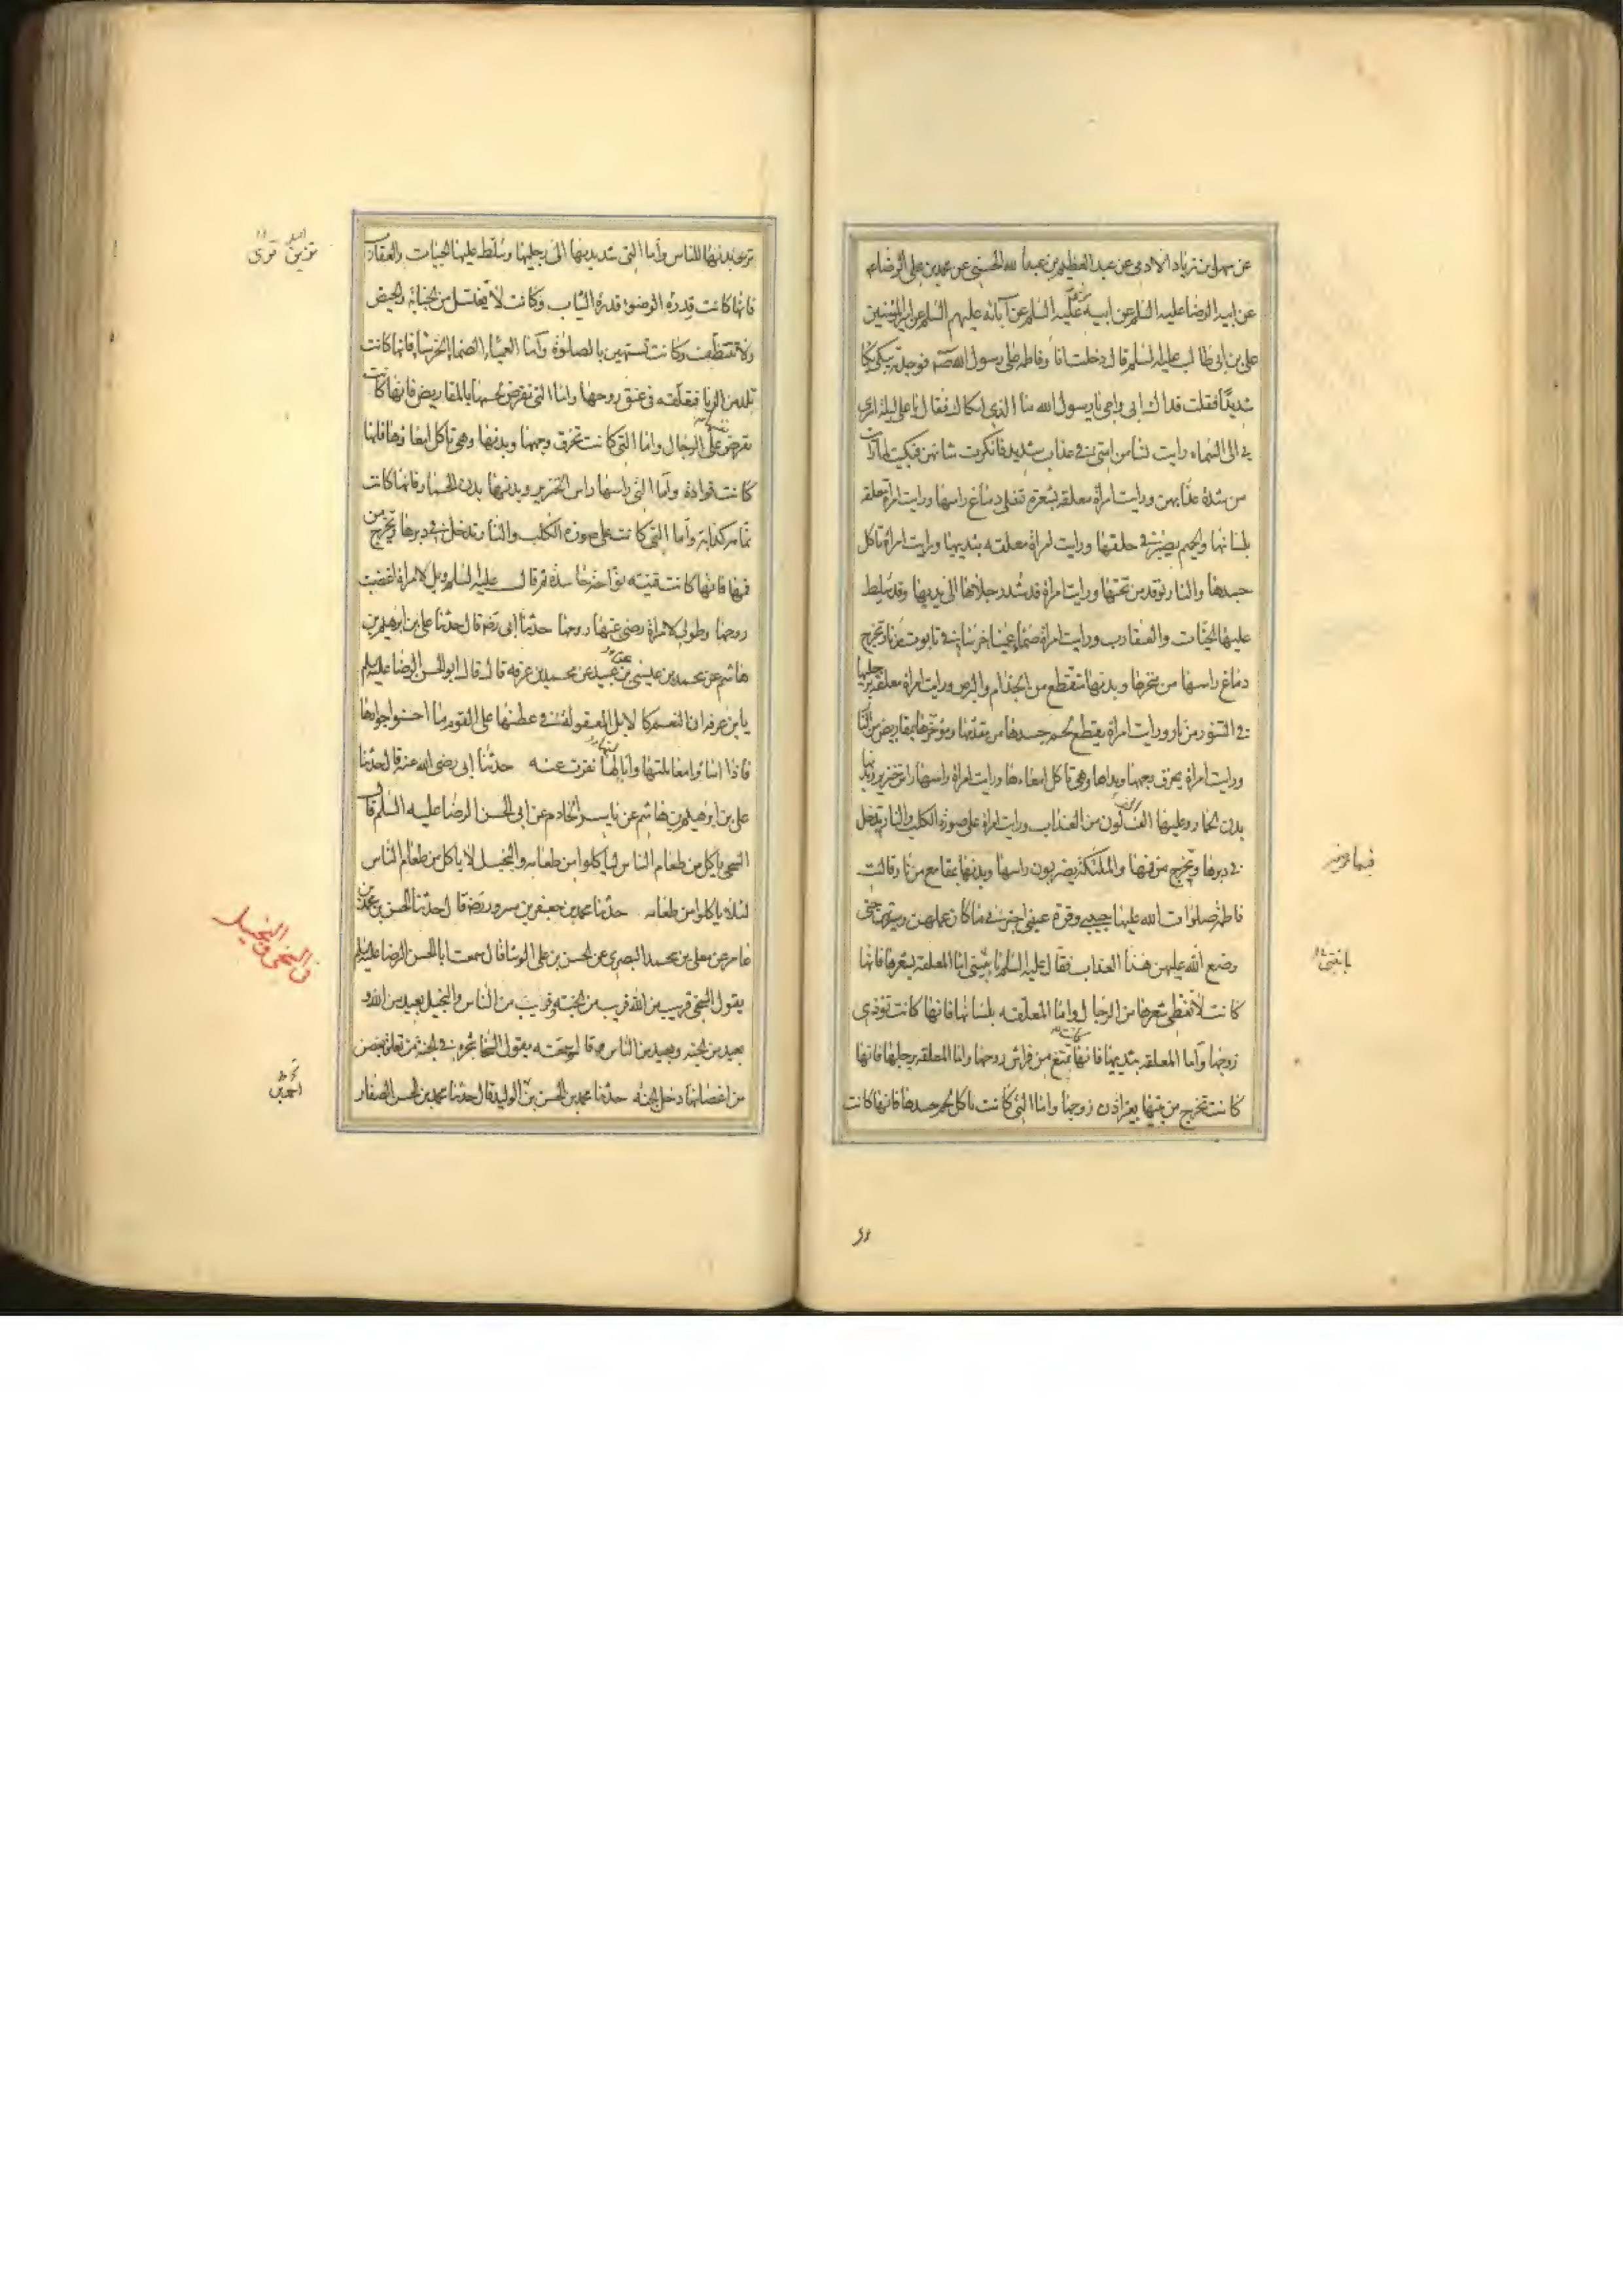 عن سهل بن زياد الادمى عن عبد العظيم بن عبد الله الحسنى عن محمد بن على الرضا عه
عن ابيه الرضا عليه السلم عن ابيه عليه السلم عن آبائه عليهم السلم عن امير المؤمنين
على بن ابى طالب عليه السلم قال دخلت انا وفاطمه على رسول الله صه فوجدته يبكى بكا
شديدًا فقلت فداك ابى وامى يا رسول الله ما الذى ابكاك فقال يا على ليلة اسرى
بى الى السماء رايت نساء من امتى فى عذاب شديد فانكرت شانهن فبكيت لما رايت
من شدة عذابهن ورايت امراة معلقه بشعرها تغلى دماغ راسها ورايت امراة معلقه
بلسانها والحميم يصب فى حلقها ورايت امراة معلقه بثدييها ورايت امراة تاكل
جسدها والنار توقد من تحتها ورايت امراة قد شدد رجلاها الى يديها وقد سلط
عليها الحيات والعقارب ورايت امراة صماء عمياء خرساء فى تابوت من نار تخرج
دماغ راسها من منخرها وبدنها متقطع من الجذام والبرص ورايت امراة معلقه برجليها
فى التنور من نار ورايت امراة يقطع لحم جسدها من مقدمها ومؤخرها بمقاريض من النار
ورايت امراة يحرق وجهها ويداها وهى تاكل امعاءها ورايت امراة راسها راس خنزير وبدنها
بدن الحمار وعليها الف الف لون من العذاب ورايت امراة على صورة الكلب والنار تدخل
فى دبرها وتخرج من فيها والملئكة يضربون راسها وبدنها بمقامع من نار فقالت
فاطمة صلوات الله عليها حبيبى وقرة عينى اخبرنى ما كان عملهن وسيرتهن حتى
وضع الله عليهن هذا العذاب فقال عليه السلم يا بنيتى اما المعلقه بشعرها فانها
كانت لا تغطى شعرها من الرجال واما المعلقه بلسانها فانها كانت توذى
زوجها واما المعلقه بثدييها فانها كانت تمتنع من فراش زوجها واما المعلقه برجليها فانها
كانت تخرج من بيتها بغير اذن زوجها واما التى كانت تاكل لحم جسدها فانها كانت
يا بنتى
تزين بدنها للناس واما التى شد يديها الى رجليها وسلط عليها الحيات والعقارب
فانها كانت قذرة الوضوء قذرة الثياب وكانت لا تغتسل من الجنابة والحيض
ولا تتنظف وكانت تستهين بالصلوة واما العمياء الصماء الخرساء فانها كانت
تلد من الزنا فتعلقه فى عنق زوجها واما التى تقرض لحمها بالمقاريض فانها كانت
تقرض نفسها على الرجال واما التى كانت تحرق وجهها وبدنها وهى تاكل امعاءها فانها
كانت قوادة واما التى راسها راس الخنزير وبدنها بدن الحمار فانها كانت
نمامه كذابة واما التى كانت على صورة الكلب والنار تدخل فى دبرها وتخرج من
فيها فانها كانت قينه نواحه حاسدة ثم قال عليه السلم ويل لامراة اغضبت
زوجها وطوبى لامراة رضى عنها زوجها حدثنا ابى رضه قال حدثنا على بن ابرهيم بن
هاشم عن محمد بن عيسى بن عبيد عن محمد بن عرفه قال قال ابو الحسن الرضا عليه السلم
يا بن عرفه ان النعم كالابل المعقولة فى عطنها على القوم ما احسنوا جوارها
فاذا اساؤا معاملتها وايالتها نفرت عنه حدثنا ابى رضى الله عنه قال حدثنا
على بن ابرهيم بن هاشم عن ياسر الخادم عن ابى الحسن الرضا عليه السلم قال
السخى ياكل من طعام الناس لياكلوا من طعامه والبخيل لا ياكل من طعام الناس
لئلا ياكلوا من طعامه حدثنا محمد بن جعفر بن مسرور رضه قال حدثنا الحسين بن محمد بن
عامر عن معلى بن محمد البصرى عن الحسن بن على الوشا قال سمعت ابا الحسن الرضا عليه السلم
يقول السخى قريب من الله قريب من الجنه قريب من الناس والبخيل بعيد من الله
بعيد من الجنه وبعيد من الناس قال وسمعته يقول السخا شجرة فى الجنة من تعلق بغصن
من اغصانها دخل الجنه حدثنا محمد بن الحسن بن الوليد قال حدثنا محمد بن الحسن الصفار
فى السخى والبخيل